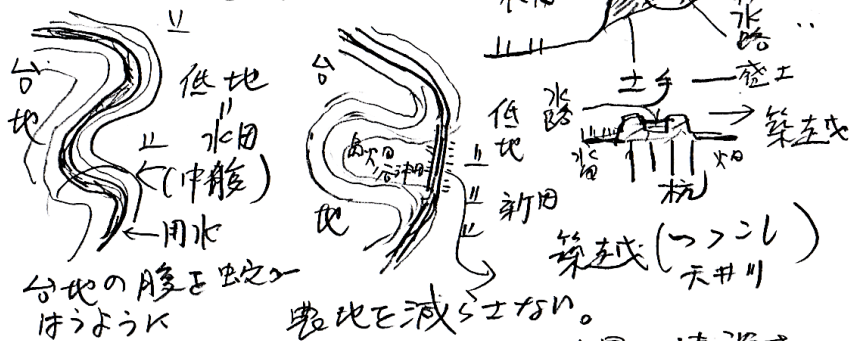 台地
低地
〃
水田
(中腹)
←用水
台地の腹を蛇の
はうように
台
地
低地
新田
農地を減らさない。
水路
土手
盛土
水路
→築越
水田
畑
杭
築越(つっこし)
天井川